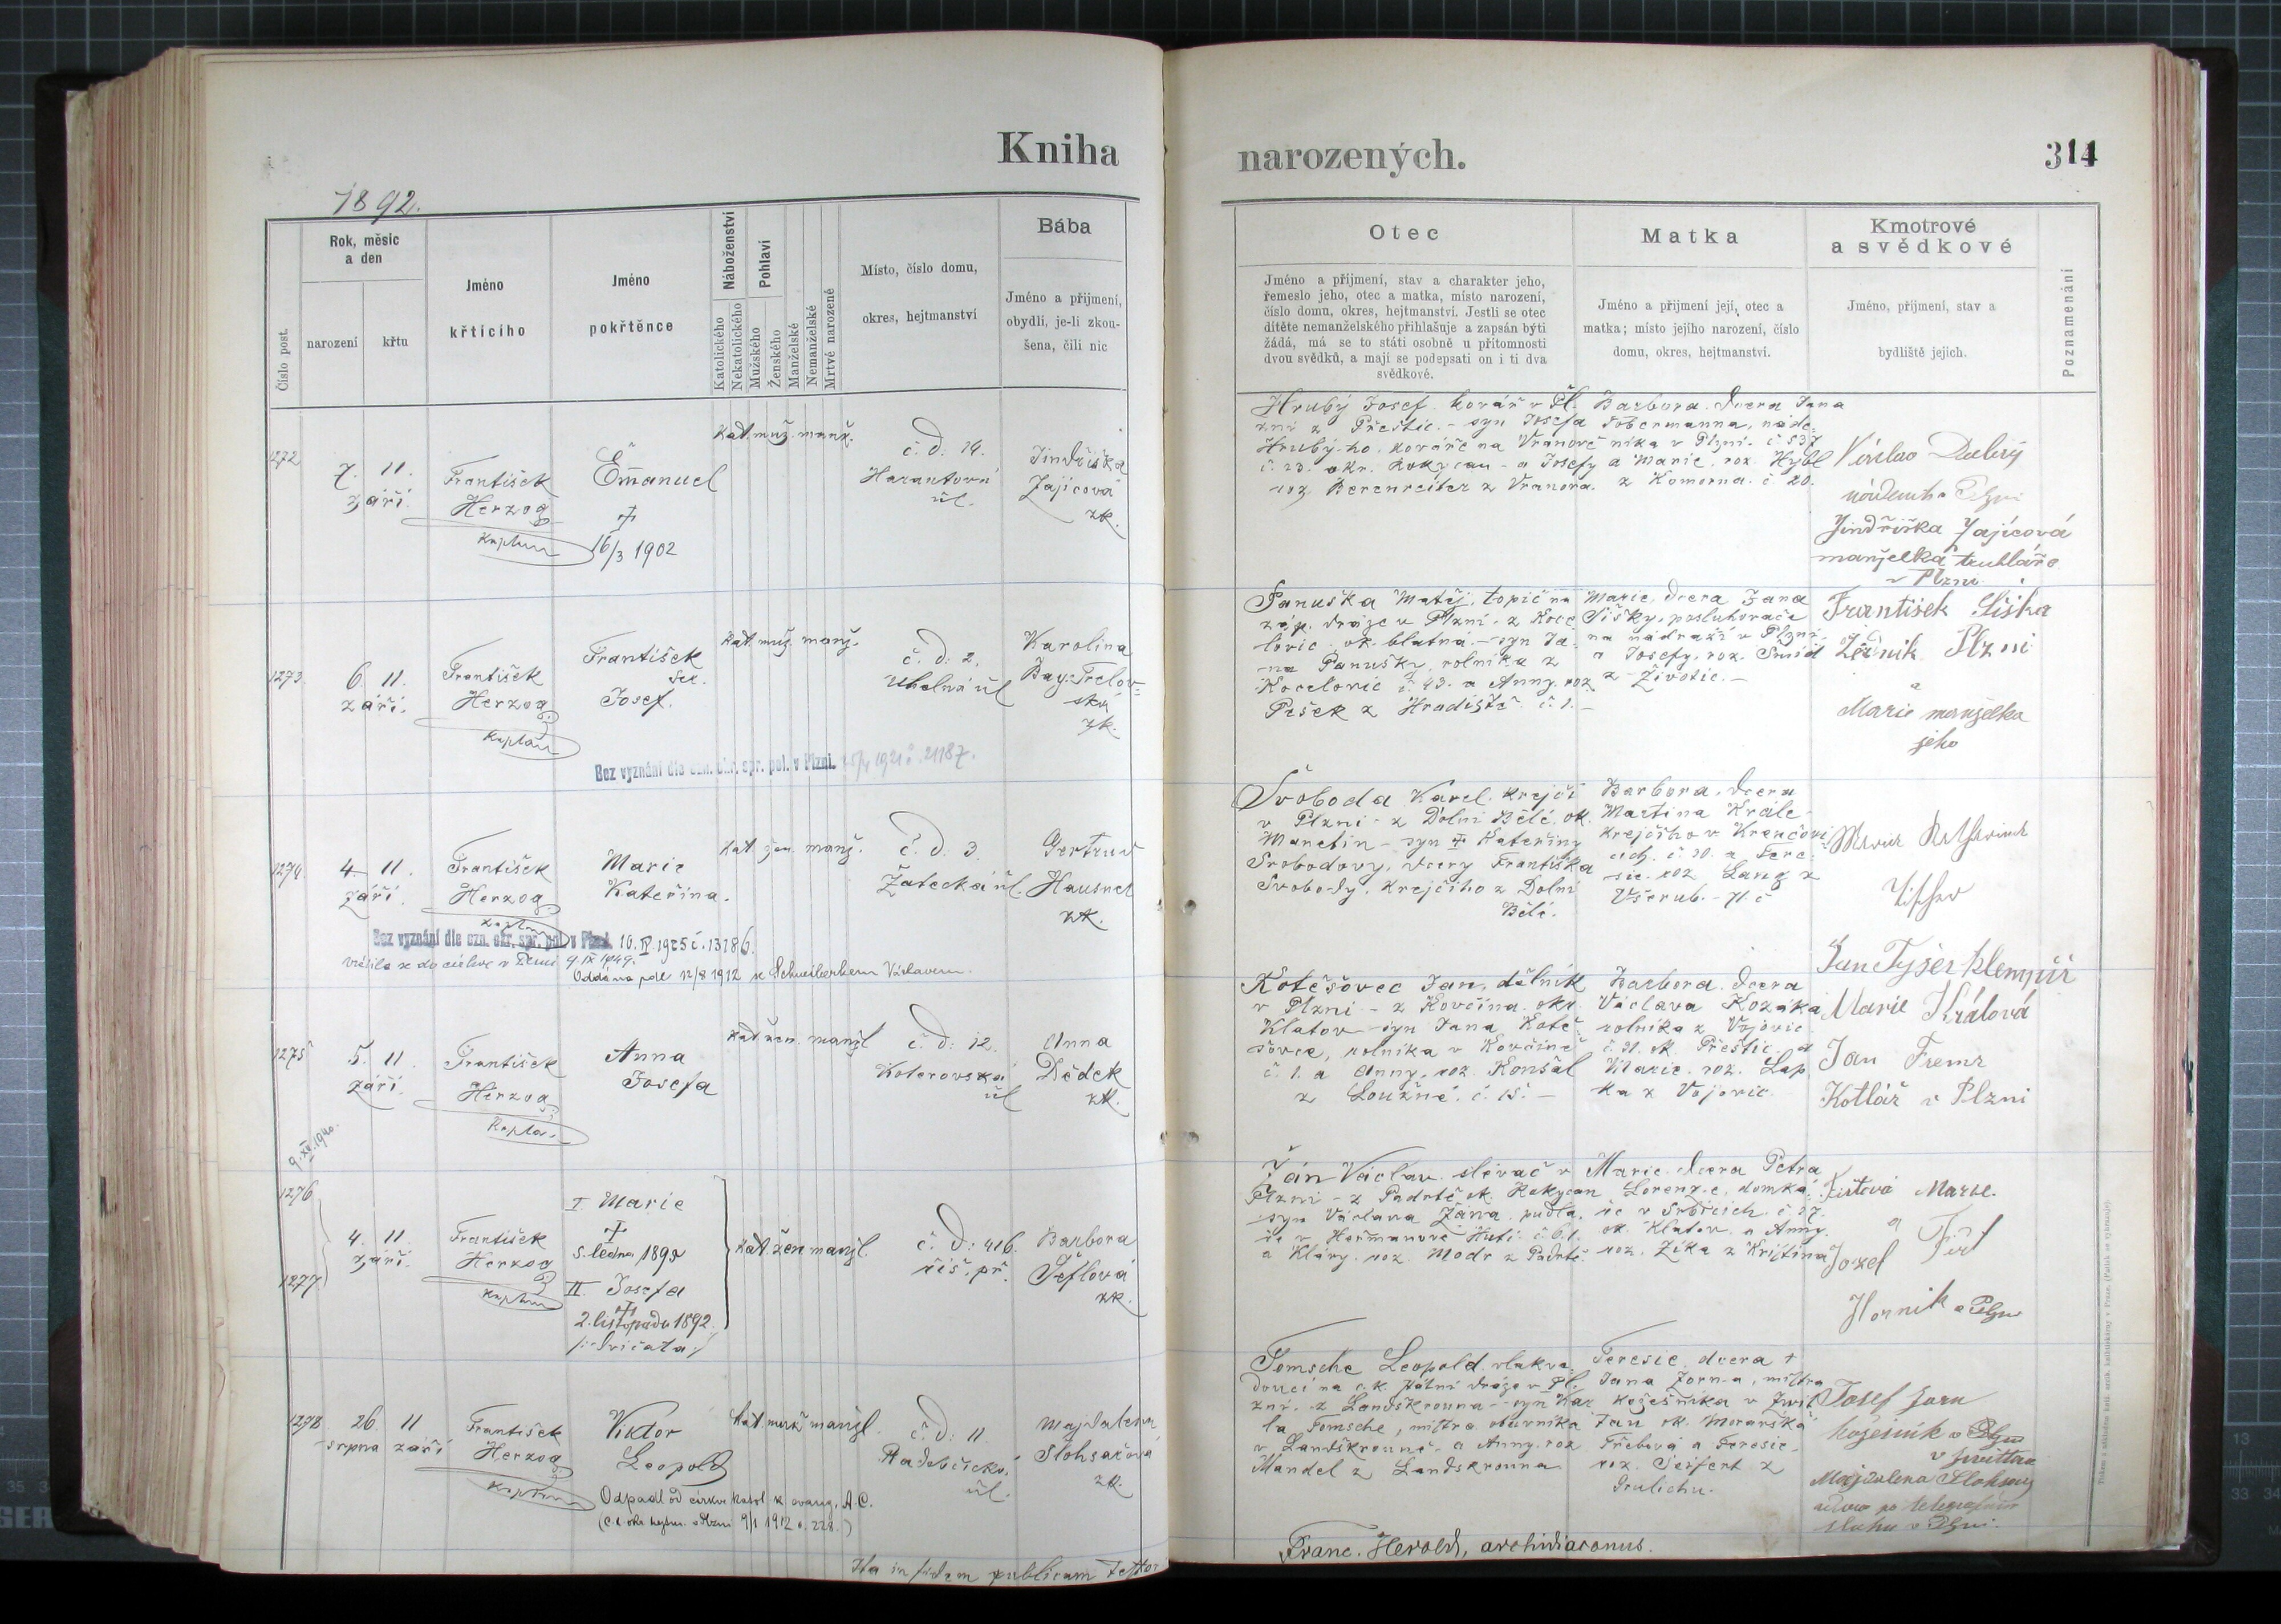 Kniha
1892.
Číslo post.
Rok, měsíc
a den
narození
křtu
Jméno
křtícího
Jméno
pokřtěnce
Náboženství
Katolického
Nekatolického
Pohlaví
Mužského
Ženského
Manželské
Nemanželské
Mrtvě narozené
Místo, číslo domu,
okres, hejtmanství
Bába
Jméno a příjmení,
obydlí, je-li zkou-
šena, čili nic
1272
7. 11.
září.
František
Herzog
Kaplan
Emanuel
†
16/3 1902
kat. muž. manž.
č. d. 19.
Harantova
úl.
Jindřiška
Zajícová
zk.
1273
6. 11.
září.
František
Herzog
Kaplan
František
Ser.
Josef.
kat. muž. manž.
č. d. 2.
Uhelná úl
Karolina
zk.
Bez vyznání dle ozn. okr. spr. pol. v Plzni. 1921 č. 21187.
1274
4. 11.
září.
František
Herzog
Kaplan
Marie
Kateřina.
kat. žen. manž.
č. d. 3.
Žatecká úl.
Gertrud
Hausner
zk.
Bez vyznání dle ozn. okr. spr. pol. v Plzni. 10. IV. 1925 č. 13786.
vrátila se do církve v Plzni 9. IX 1949.
Oddána dle 12/8 1912 se Václavem.
1275
5. 11
září.
František
Herzog
Kaplan
Anna
Josefa
kat. žen. manžl
č. d. 12.
Koterovská
úl
Anna
Dědek
zk.
9. XI. 1940.
1276
1277
4. 11.
září.
František
Herzog
Kaplan
I. Marie
†
5. ledna 1892
II. Josefa
†
2. listopadu 1892.
/: Dvíčata :/
kat. žen manžl.
č. d: 416.
říš. př.
Barbora
Šeflová
zk.
1278
26. 11
srpna září
František
Herzog
Kaplan
Viktor
Leopold
kat. muž manžl.
č. d. 11.
Radobčická
úl.
Magdalena
zk.
Odpadl od církve katol k evang. A. C.
9/1 1912 č. 228.)
Ita in fidem publicam testor
narozených.
314
Otec
Jméno a příjmení, stav a charakter jeho,
řemeslo jeho, otec a matka, místo narození,
číslo domu, okres, hejtmanství. Jestli se otec
dítěte nemanželského přihlašuje a zapsán býti
žádá, má se to státi osobně u přítomnosti
dvou svědků, a mají se podepsati on i ti dva
svědkové.
Matka
Jméno a příjmení její, otec a
matka; místo jejího narození, číslo
domu, okres, hejtmanství.
Kmotrové
a svědkové
Jméno, příjmení, stav a
bydliště jejich.
Poznamenání
Hrubý Josef. kovář v Pl.
zni z Přeštic. - syn Josefa
Hrubý-ho, kováře na Vranově
č. 23. okr. Rokycan - a Josefy
roz. Berenreiter z Vranova.
Barbora. dcera Jana
Dobermanna, náde-
níka v Plzni. č 537
a Marie, roz. Hýbl
z Komorna. č. 20.
Václav
Jindřiška Zajícová
manželka truhláře
v Plzni
Panuška Matěj, topič na
záp. dráze v Plzni - z Koce-
lovic, ok. blatná - syn Ja-
na Panušky, rolníka z
Kocelovic č. 43. a Anny. roz
Pešek z Hradiště č. 1. -
Marie, dcera Jana
Šišky, posluhovače
na nádraží v Plzni -
a Josefy, roz. Šmíd
z Životic. -
František Šiška
Plzni
a
Marie manželka
jeho
Svoboda Karel. krejčí
v Plzni - z Dolní Bělé. ok.
Manetín - syn † Kateřiny
Svobodovy, dcery Františka
Svobody, krejčího z Dolní
Bělé.
Barbora, dcera
Martina Krále
krejčího v Krenčovi-
cích. č. 30. a Tere-
sie. roz Lang z
Všerub. - 71. č
Kotěšovec Jan, dělník
v Plzni - z Kovčína. okr.
Klatov - syn Jana Kotě-
šovce, rolníka v Kovčíně
č. 1. a Anny, roz. Konšal
z Loužné. č. 15. -
Barbora. dcera
Václava Kozáka
rolníka z Vojovic
č. 21. ok. Přeštic a
Marie. roz. Lap-
ka z Vojovic.
Jan Tyšer klempíř
Marie Králová
Jan Fremr
Kotlář v Plzni
Žán Václav. slévač v
Plzni - z Padrtě ok. Rokycan
syn Václava Žána. pudla-
ře v Heřmanově Huti. č. 61.
a Kláry. roz. Modr z Padrtě.
Marie. dcera Petra
Lorenz-e, domká-
ře v Srbicích. č 37.
ok. Klatov. a Anny.
roz. Zíka z Kristina
Marie.
a
Jozef
Hornik v Plzni
Tomsche Leopold. vlakve-
doucí na c. k. státní dráze v Pl.
zni. - z Landskrouna - syn Kar
la Tomsche, mistra obuvníka
v Landškrouně - a Anny. roz
Mandel z Landskrouna
Teresie. dcera †
Jana Zorn-a, mistra
kožešníka v Zwit-
tau ok. Moravská
Třebová a Teresie-
roz. Seifert z
Grulichu.
Josef Zorn
kožešník v Plzni
v Zwittau
Magdalena
vdova po telegrafním
sluhu v Plzni.
Franc. Herold, archidiaconus.